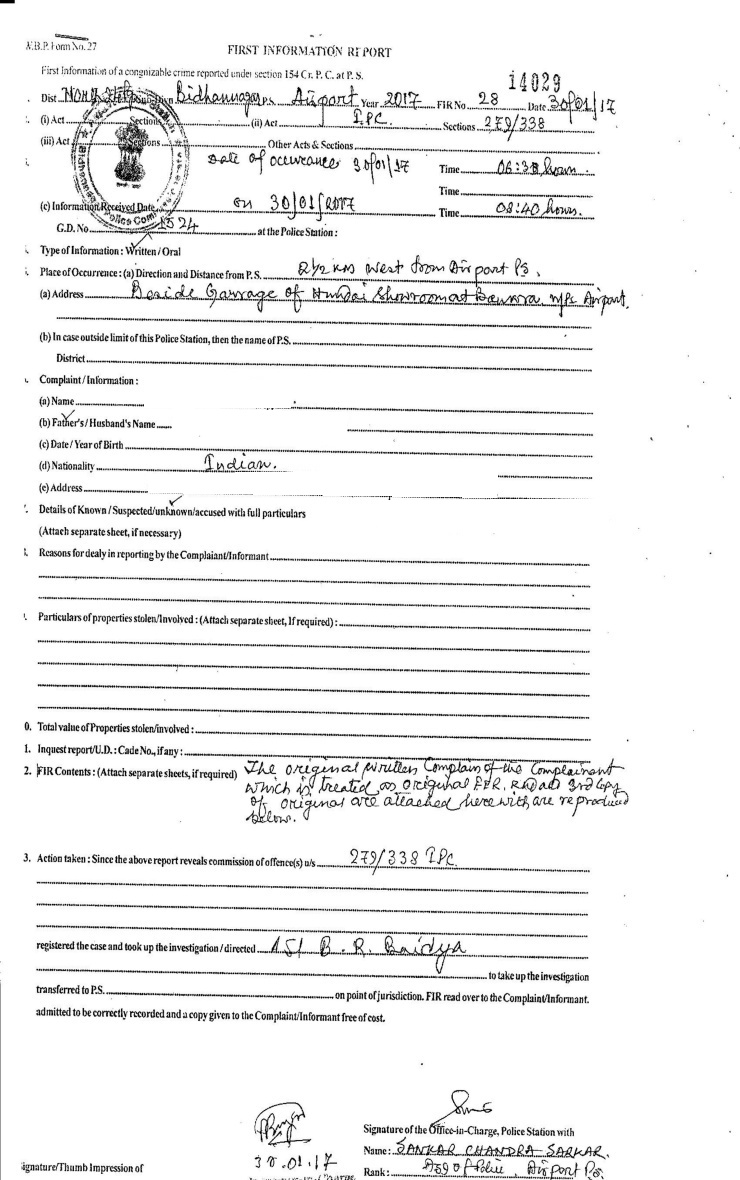 W.B.P. Form No. 27
FIRST INFORMATION REPORT
First Information of a congnizable crime reported under section 154 Cr. P. C. at P. S.
14029
Dist Bidhannagar P.S. Airport Year 2017 FIR No 28 Date 30/01/17
(i) Act Sections (ii) Act IPC. Sections 279/338
(iii) Act Sections Other Acts & Sections
Date of occurance 30/01/17 Time 06:30 hours.
Time
(c) Information Received Date on 30/01/2017 Time 08:40 hours.
G.D. No 1524 at the Police Station :
Type of Information : Written / Oral
Place of Occurrence : (a) Direction and Distance from P. S. 2 1/2 KM West from Airport PS.
(a) Address Beside Garrage of Hundai Showroom at Bankra, Airport.
(b) In case outside limit of this Police Station, then the name of P.S.
District
Complaint / Information :
(a) Name
(b) Father's / Husband's Name
(c) Date / Year of Birth
(d) Nationality Indian.
(e) Address
Details of Known / Suspected/unknown/accused with full particulars
(Attach separate sheet, if necessary)
Reasons for dealy in reporting by the Complaiant/Informant
Particulars of properties stolen/Involved : (Attach separate sheet, If required) :
0. Total value of Properties stolen/involved :
1. Inquest report/U.D. : Cade No., if any :
2. FIR Contents : (Attach separate sheets, if required) The original written Complain of the Complainent
which is treated as original FIR, 3rd Copy
of original are attached herewith are reproduced
below.
3. Action taken : Since the above report reveals commission of offence(s) u/s 279/338 IPC.
registered the case and took up the investigation / directed ASI B. R. Baidya
to take up the investigation
transferred to P.S. on point of jurisdiction. FIR read over to the Complaint/Informant.
admitted to be correctly recorded and a copy given to the Complaint/Informant free of cost.
30.01.17
Signature of the Office-in-Charge, Police Station with
Name : SANKAR CHANDRA SARKAR.
ignature/Thumb Impression of
Rank : of Police, Airport P.S.